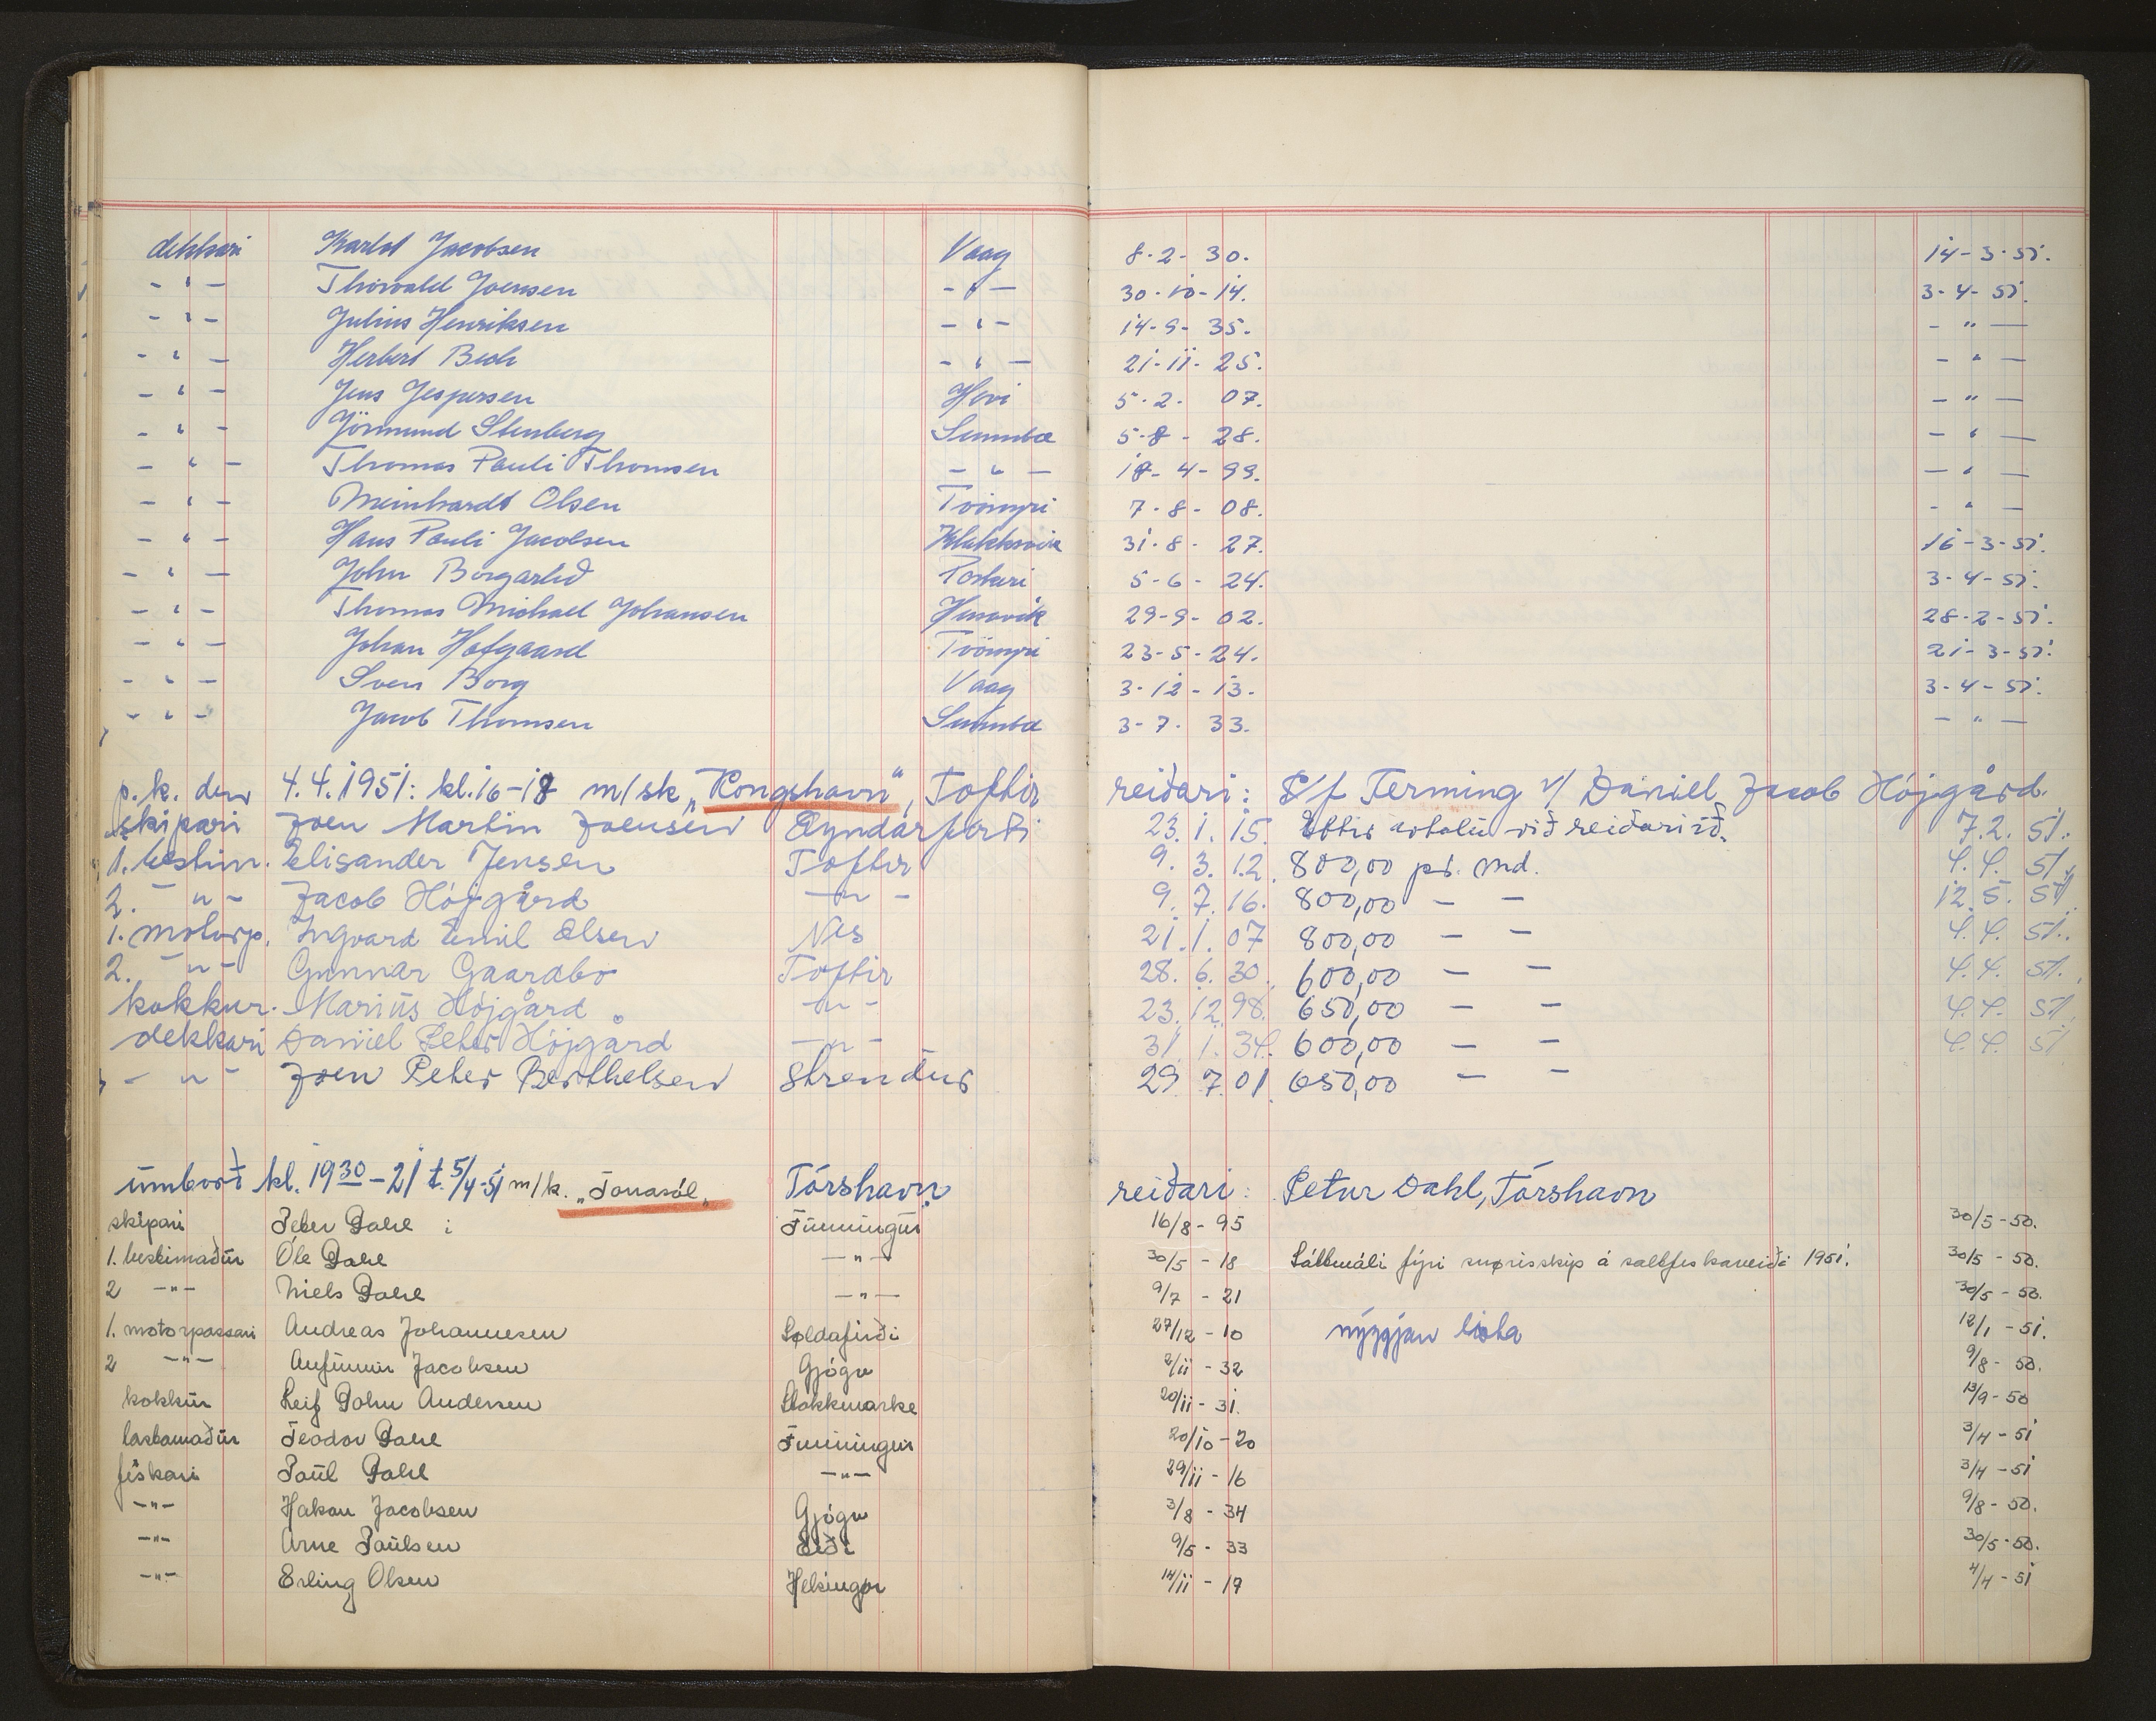 dekkari Karlot Jacobsen Vaag 8-2-30. 14-3-51.
- " - Thorvald Joensen - " - 30-10-14. 3-4-51.
- " - Julius Henriksen - " - 14-9-35. - " -
- " - Herbert Bech - " - 21-11-25. - " -
- " - Jens Jespersen Hovi 5-2-07. - " -
- " - Jörmund Stenberg Sumba 5-8-28. - " -
- " - Thomas Pauli Thomsen - " - 18-4-99. - " -
- " - Meinhardt Olsen Tvöroyri 7-8-08. - " -
- " - Hans Pauli Jacobsen Klakksvik 31-8-27. 16-3-51.
- " - John Borgarlið Porkeri 5-6-24. 3-4-51.
- " - Thomas Michael Johansen Hvnavik 29-9-02. 28-2-51.
- " - Johan Hofgaard Tvöroyri 23-5-24. 21-3-51.
- " - Sven Borg Vaag 3-12-13. 3-4-51.
- " - Jacob Thomsen Sumba 3-7-33. - " -
p.k. den 4.4.1951: kl.16-18 m/sk „Kongshavn“, Toftir reiðari: P/f Terming v/ Daniel Jacob Højgård.
skipari Joen Martin Joensen Oyndarfjerti 23.1.15. Eftir avtalu við reiðaríið. 7.2.51.
1. bestim. Elisander Jensen Toftir 9.3.12. 800,00 pr. md. 4.4.51.
2. - " - Jacob Højgård - " - 9.7.16. 800,00 - - 12.5.51.
1. motorp. Ingvard Emil Olsen Nes 21.1.07 800,00 - - 4.4.51.
2. - " - Gunnar Gaardbo Toftir 28.6.30. 600,00 - - 4.4.51.
kokkur. Marius Højgård - " - 23.12.98. 650,00 - - 4.4.51.
dekkari Daniel Peter Højgård - " - 31.1.34. 600,00 - - 4.4.51
- " - Joen Peter Berthelsen Strendur 29.7.01. 650,00 - -
umborð kl. 19 30 - 21 t. 5/4-51 m/k. „Tonasól„ Tórshavn reiðari: Petur Dahl, Tórshavn
skipari Peter Dahl Funningur 16/8 - 95 30/5 - 50.
1. bestimaður Óle Dahl - " - 30/5 - 18 Sáttmáli fyri snørisskip á saltfiskaveiði 1951. 30/5 - 50.
2 - " - Niels Dahl - " - 9/7 - 21 30/5 - 50.
1. motorpassari Andreas Johannesen Søldafirði 27/12 - 10 nýggjan lista 12/1 - 51.
2 - " - Anfinnur Jacobsen Gjógv 2/11 - 32 9/8 - 50.
kokkur Leif Dohn Andersen Stokkmarke 20/11 - 31. 13/9 - 50
lastamaður Teodor Dahl Funningur 20/10 - 20 3/4 - 51
fiskari Paul Dahl - " - 29/11 - 16 3/4 - 51
- " - Hakon Jacobsen Gjógv 3/8 - 34 9/8 - 50.
- " - Arne Paulsen Eiði 9/5 - 33 30/5 - 50.
- " - Erling Olsen Helsingør 14/11 - 19 4/4 - 51